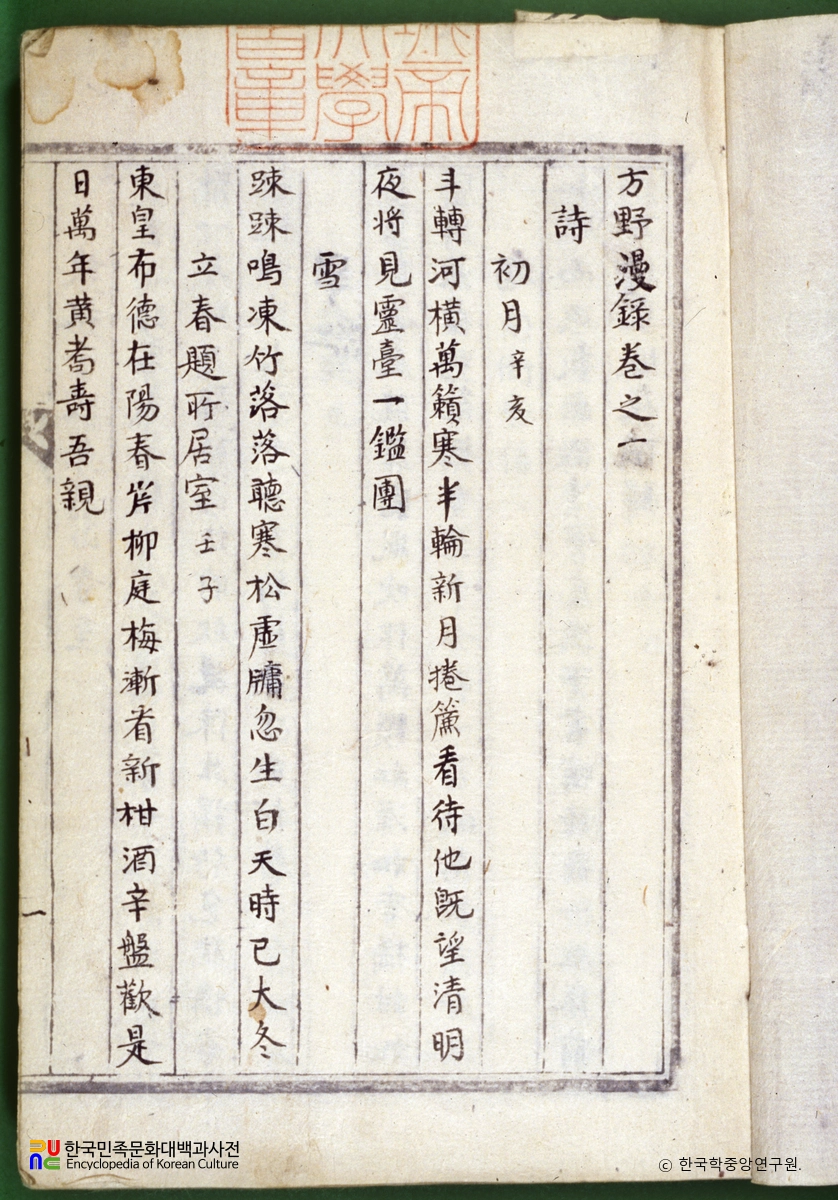 帝
大學
章
方野漫錄卷之一
詩
初月 辛亥
斗轉河橫萬籟寒半輪新月捲簾看待他旣望淸明
夜将見靈臺一鑑團
雪
踈踈鳴凍竹落落聽寒松虛牗忽生白天時已大冬
立春題所居室 壬子
東皇布德在陽春岸柳庭梅漸看新柑酒辛盤歡是
日萬年黃耈壽吾親
一
한국민족문화대백과사전
Encyclopedia of Korean Culture
© 한국학중앙연구원.